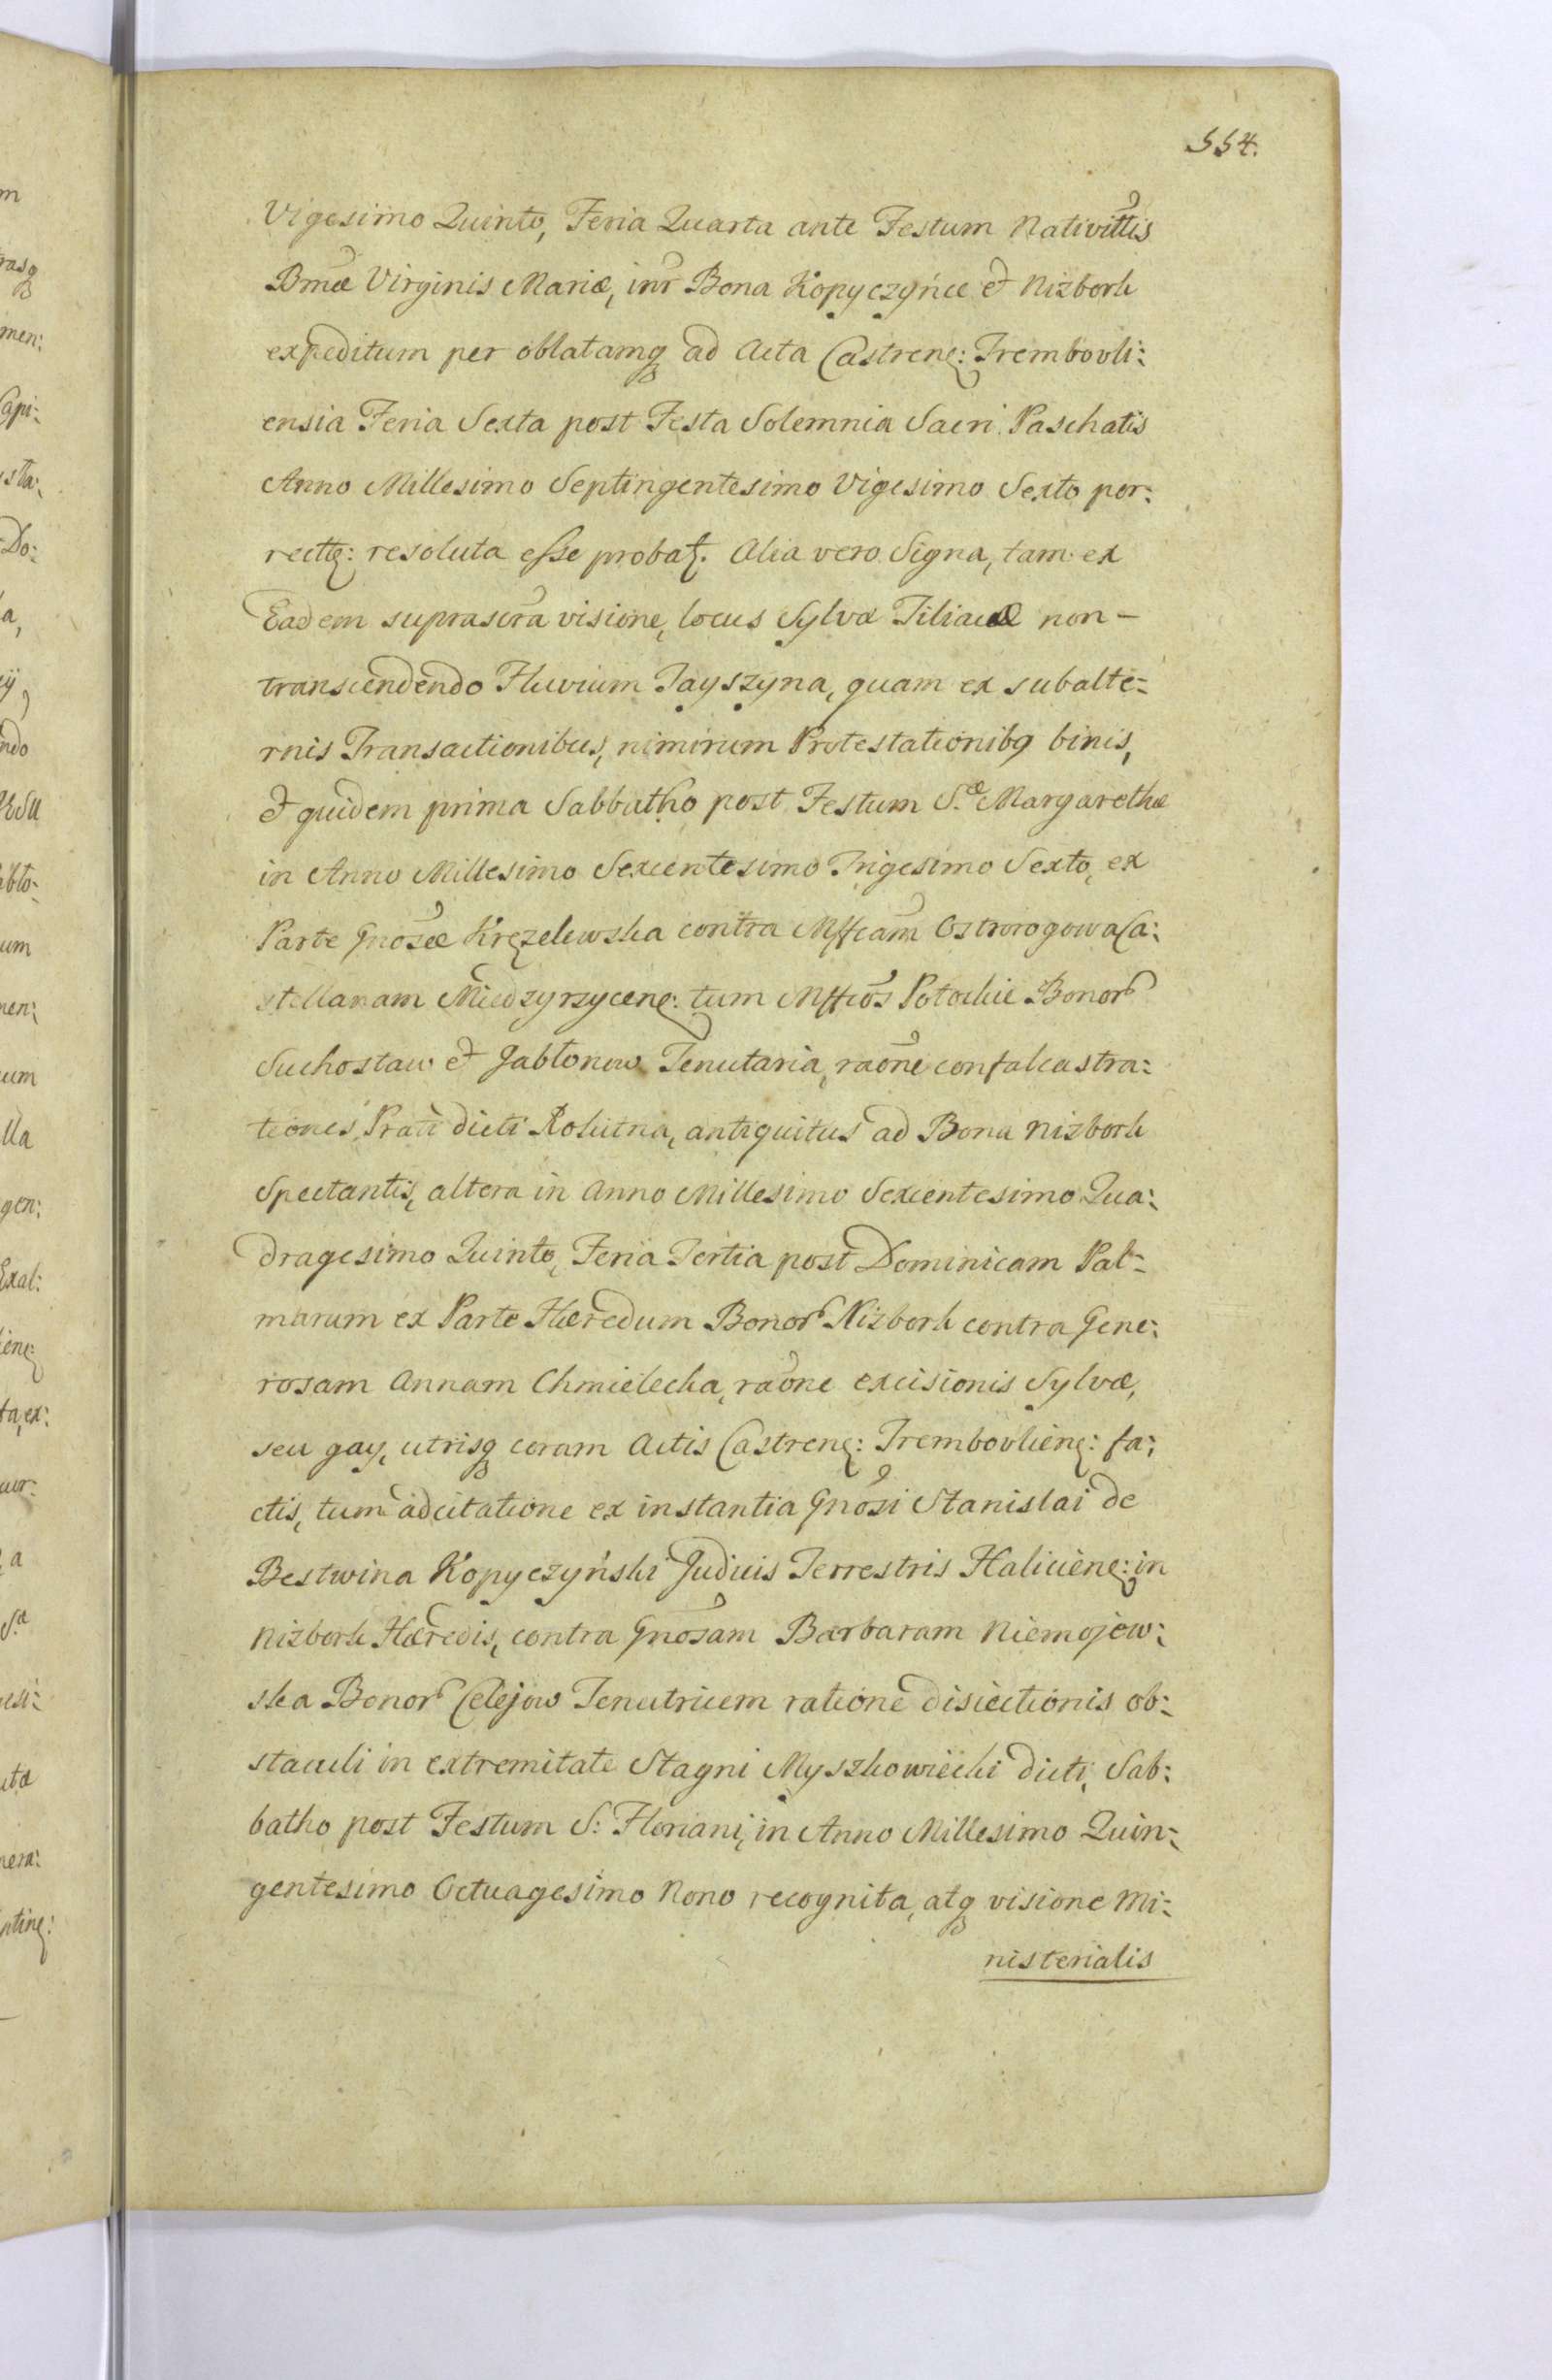 554.
Vigesimo Quinto, Feria Quarta ante Festum Nativittis
Bmæ Virginis Mariæ, intr Bona Kopyczyńce et Nizbork
expeditum per oblatamq ad Acta Castrenę: Trembovli:
ensia Feria Sexta post Festa Solemnia Sacri Paschatis
Anno Millesimo Septingentesimo Vigesimo Sexto por:
rectę: resoluta esse probat. Alia vero Signa, tam ex
Eadem suprascra visione, locus Sylvæ Tiliacæ non –
transcendendo Fluvium Tayszyna, quam ex subalte:
rnis Transactionibus, nimirum Protestationibq binis,
et quidem prima Sabbatho post Festum S.æ Margarethæ
in Anno Millesimo Sexcentesimo Trigesimo Sexto, ex
Parte Gnosæ Kręzelewska contra Mffcam Ostrorogowa Ca:
stellanam Miedzyrzycenę: tum Mffcos Potockie Bonor
Suchostaw et Jabłonow Tenutaria, raone confalcastra:
tiones Prati dicti Rokitna, antiquitus ad Bona Nizbork
Spectantis, altera in Anno Millesimo Sexcentesimo Qua:
dragesimo Quinto, Feria Tertia post Dominicam Pal:
marum ex Parte Hæredum Bonor Nizbork contra Gene:
rosam Annam Chmielecka, raone excisionis Sylvæ,
seu gay, utrisq coram Actis Castrenę: Trembovlienę: fa:
ctis, tum adcitatione ex instantia Gnosi Stanislai de
Bestwina Kopyczyński Judicis Terrestris Halicienę: in
Nizbork Hæredis, contra Gnosam Barbaram Niemojew:
ska Bonor Celejow Tenutricem ratione disiectionis ob:
staculi in extremitate Stagni Myszkowiecki dicti, Sab:
batho post Festum S: Floriani, in Anno Millesimo Quin:
gentesimo Octuagesimo Nono recognita, atq visione Mi:
nisterialis